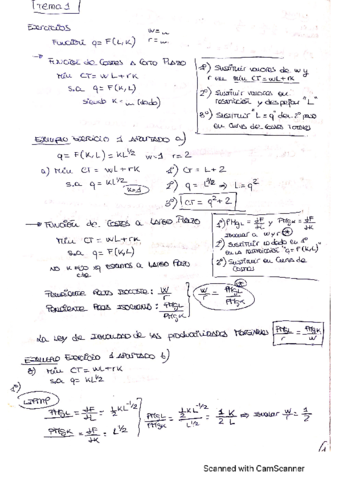 Tema 1
EJERCICIOS w=...
Función q= F(L,K) r=...
→ FUNCIÓN DE COSTES A CORTO PLAZO
Min CT = wL + rK
s.a. q = F(K,L)
siendo K = ... (dado)
1º) Sustituir valores de w y r en Min CT = wL + rK
2º) Sustituir valores en restricción y despejar "L"
3º) Sustituir "L = q" del 2º paso en Curva de Costes Totales
EJEMPLO EJERCICIO 1 APARTADO a)
q = F(K,L) = KL^1/2 w=1 r=2
a) Min CT = wL + rK 1º) CT = L + 2
s.a. q = KL^1/2 K=1 2º) q = L^1/2 ⇒ L = q²
3º) CT = q² + 2
→ FUNCIÓN DE COSTES A LARGO PLAZO
Min CT = wL + rK
s.a. q = F(K,L)
NO K
A LARGO PLAZO
1) PMgL = dF/dL y PMgK = dF/dK
igualar a w y r
2º) Sustituir
en la restricción "q = F(K,L)"
3º) Sustituir en Curva de Costes
PENDIENTE RECTA ISOCOSTE: w/r
PENDIENTE
PMgL/PMgK
w/r = PMgL/PMgK
LA LEY DE IGUALDAD DE LAS PRODUCTIVIDADES MARGINALES PMgL/r = PMgK/w
EJEMPLO EJERCICIO 1 APARTADO b)
b) Min CT = wL + rK
s.a. q = KL^1/2
1º)
PMgL = dF/dL = 1/2 KL^-1/2
PMgK = dF/dK = L^1/2
PMgL/PMgK = 1/2 KL^-1/2 / L^1/2 = 1/2 K/L ⇒ igualar w/r = 1/2
Scanned with CamScanner